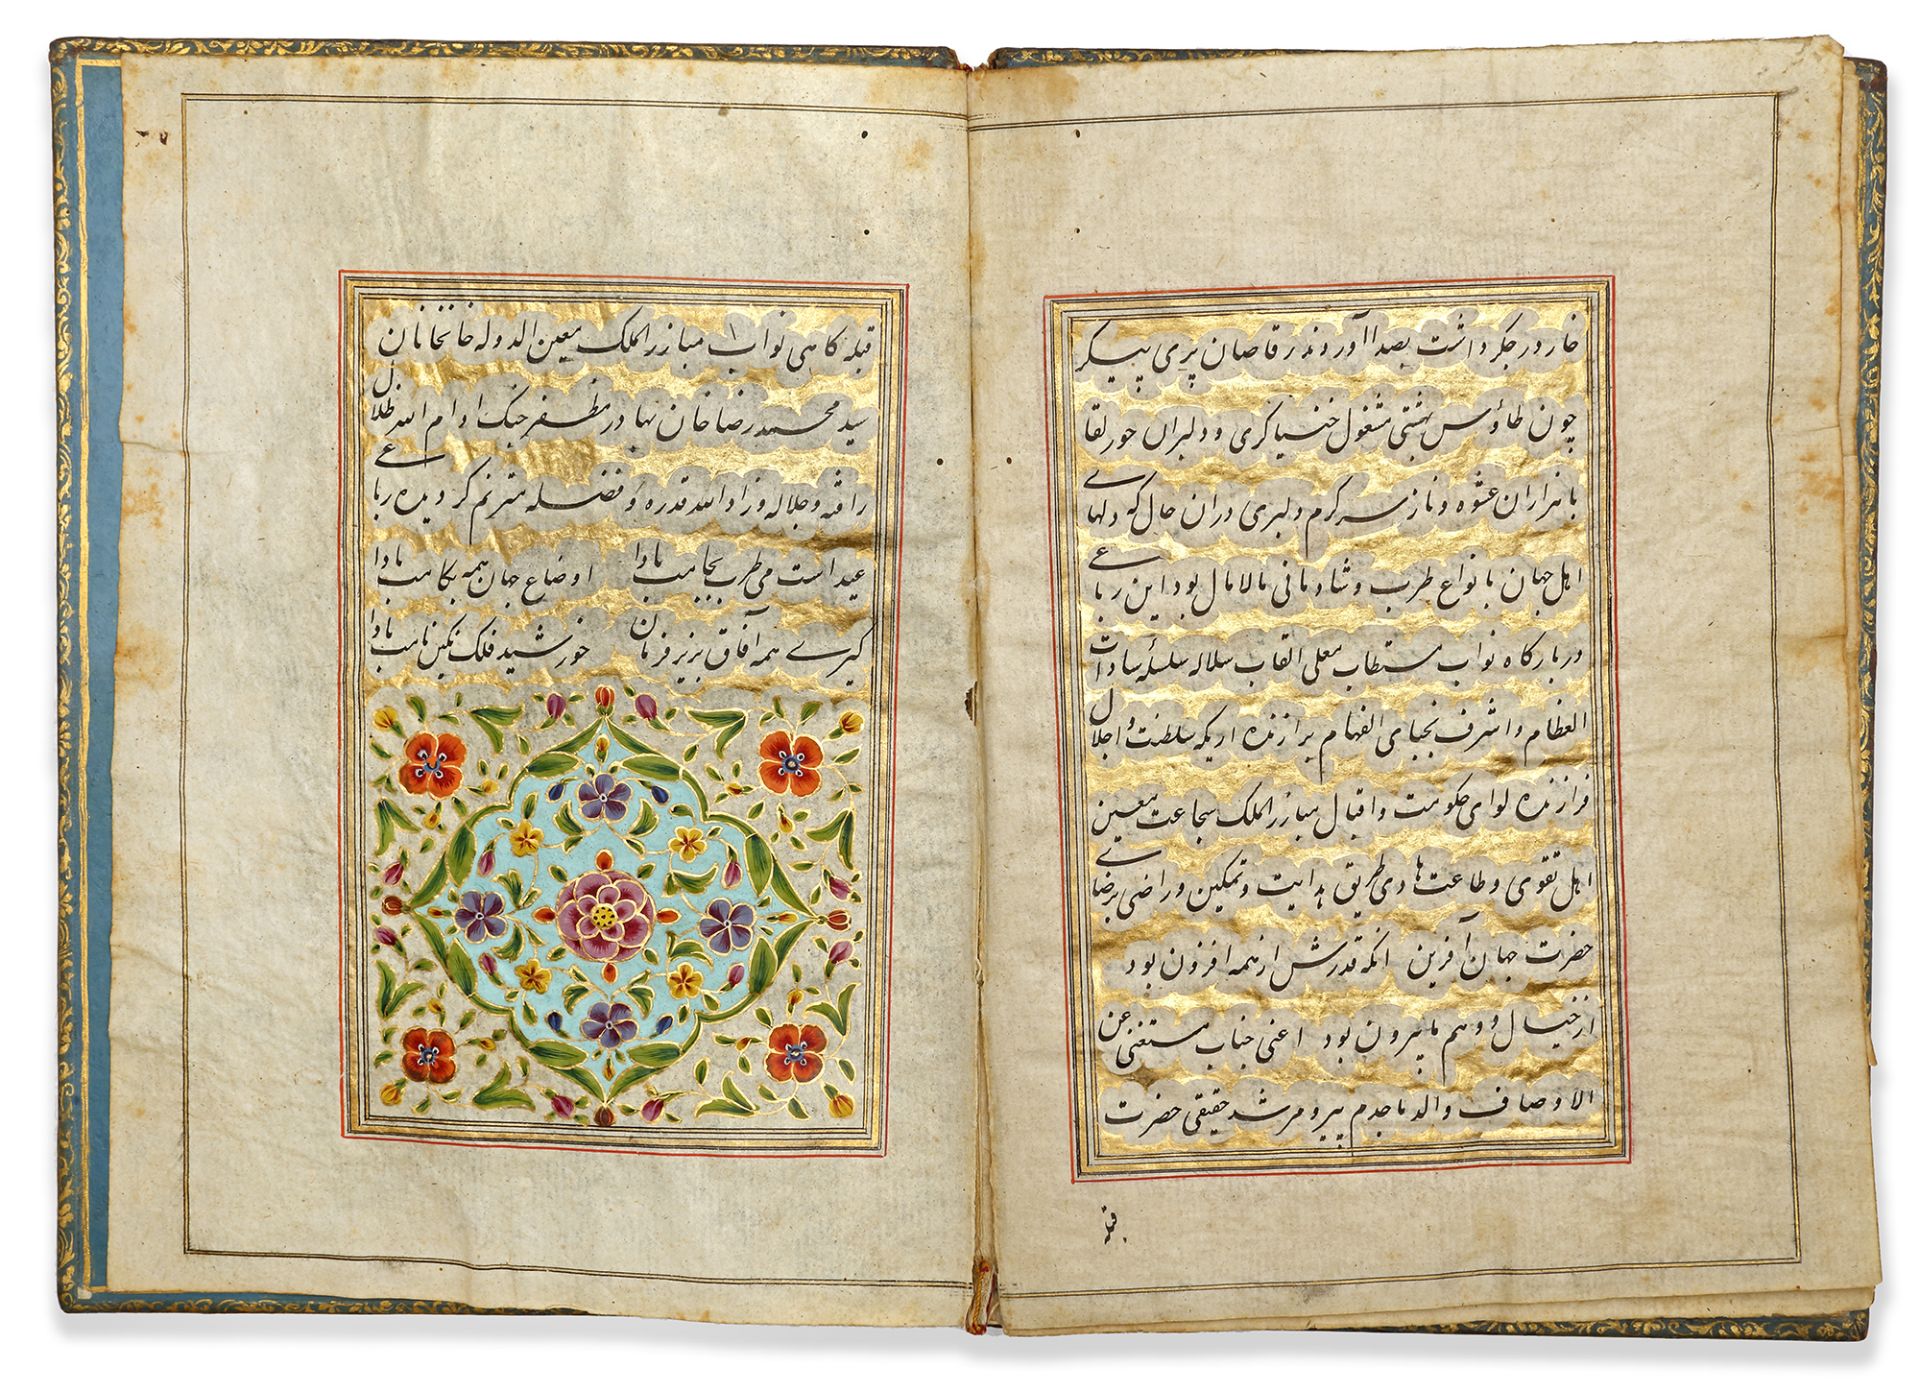 خار در جکر داشت بصدا آوردند رقاصان پری پیکر
چون طاوس بهشتی مشغول خنیاکری و دلبران حور لقا
با هزاران عشوه و ناز سرکرم دلبری دران حال که دلهای
اهل جهان بانواع طرب و شادمانی مالامال بود این رباعی
دربارکاه نواب مستطاب معلی القاب سلاله سلسلۀ سادات
العظام و اشرف نجبای الفهام برازنده اریکه سلطنت و اجلال
فرازنده لوای حکومت و اقبال مبارز الملک شجاعت معین
اهل تقوی و طاعت هادی طریق هدایت و تمکین و راضی برضای
حضرت جهان آفرین انکه قدرش از همه افزون بود
از خیال و وهم ما بیرون بود اعنی جناب مستغنی عن
الاوصاف والد ماجدم پیر و مرشد حقیقی حضرت
قبله
قبله کاهی نواب مبارز الملک معین الدوله خانخانان
سید محمد رضا خان بهادر مظفر جنک ادام الله ظلال
رافته و جلاله و زاد الله قدره و فضله مترنم کردیده رباعی
عید است می طرب بجامت بادا اوضاع جهان همه بکامت بادا
کیری همه آفاق بزیر فرمان خورشید فلک نکین نامت بادا